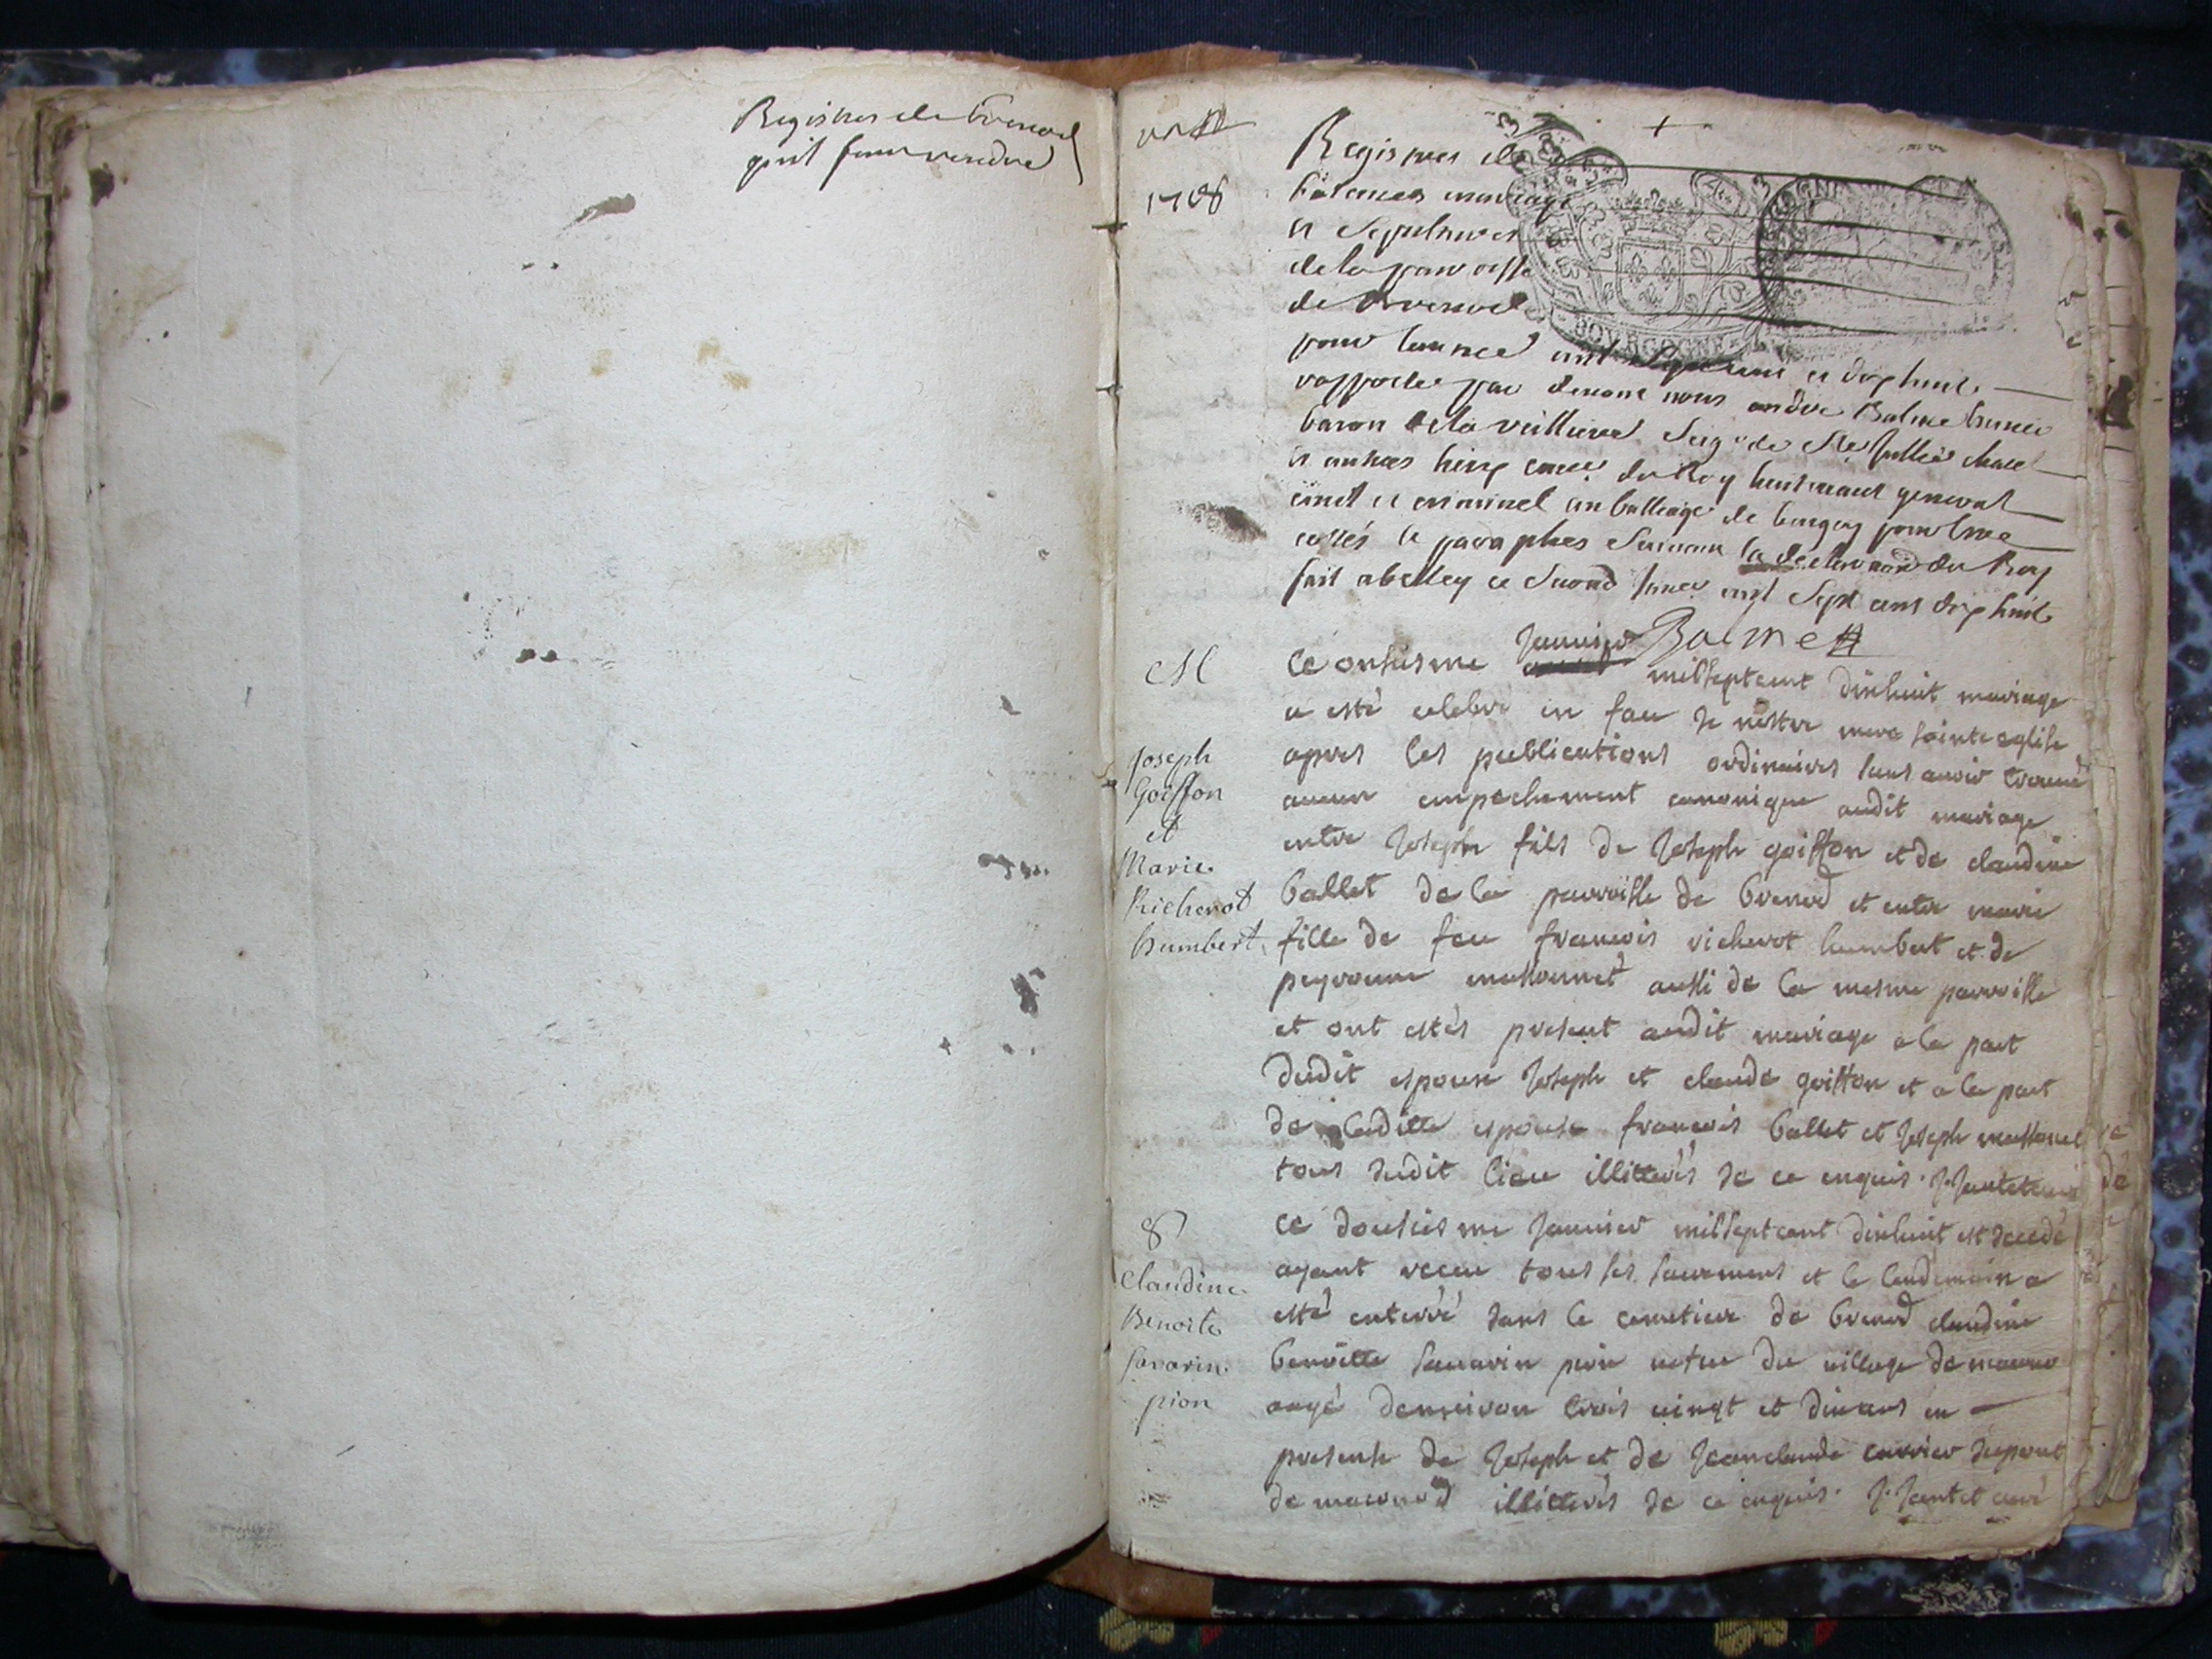 Registres de brenod
quil faut rendre
1718
Registres de
batemes mariage
et Sepultures
de la parroisse
de brenod
BOURGOGNE
pour lannee mil Sept cens et dix huit
par devant nous andre Balme
baron de la veilliere Seigr de Ste Jullie
et autres du Roy lieutenant general
civil et criminel au balliage de bugey pour estre
cottés et paraphes Suivant la declaration du Roy
fait a belley ce Second mil Sept cens dix huit
Balme
M
Joseph
Goiffon
et
Marie
Richerot
humbert
ce onsiesme Janvier milseptcent dixhuit mariage
a esté celebré en face de nostre mere sainte eglise
apres les publications ordinaires sans avoir trouvé
aucun empechement canonique audit mariage
entre Joseph fils de Joseph goiffon et de claudine
ballet de la parroisse de brenod et entre marie
fille de feu francois richerot humbert et de
peyronne massonnet aussi de la mesme parroisse
et ont estés present audit mariage a la part
dudit espoux Joseph et claude goiffon et a la part
de laditte espouse francois ballet et Joseph massonet
tous dudit lieu illitterés de ce enquis. J. Jantet curé
S
Claudine
Benoite
savarin
pion
ce dousiesme Janvier milseptcent dixhuit est decedé
ayant receu tous ses sacremens et le lendemain a
esté enterré dans le cemetiere de brenod claudine
benoitte savarin pion du village de
aagé denviron trois vingt et dix ans en
presence de Joseph et de Jeanclaude carrier
de maconod illitterés de ce enquis. J. Jantet curé